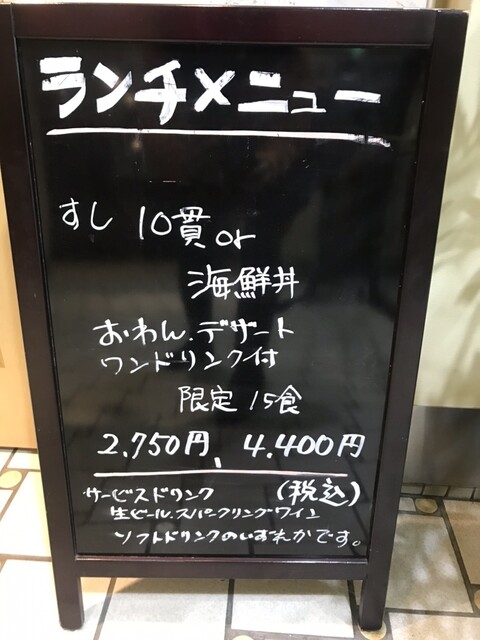 ランチメニュー
すし 10貫 or
海鮮丼
おわん、デザート
ワンドリンク付
限定 15食
2,750円、4,400円
サービスドリンク (税込)
生ビール、スパークリングワイン
ソフトドリンクのいずれかです。